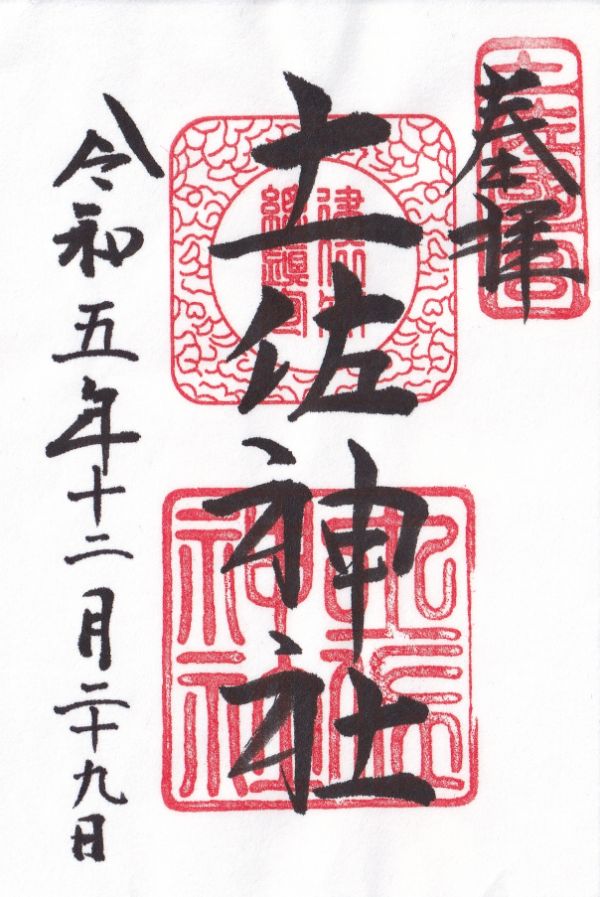 奉拝
土佐國一宮
土佐神社
建依別
總鎮守
神社
令和五年十二月二十九日